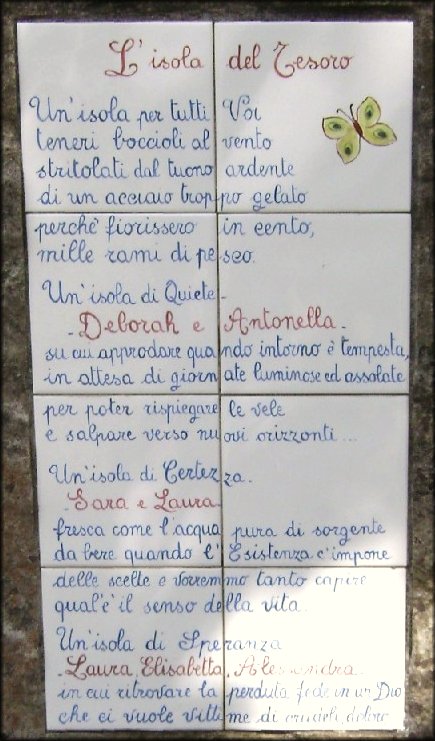 L'isola del Tesoro
Un'isola per tutti Voi
teneri boccioli al vento
stritolati dal tuono ardente
di un acciaio troppo gelato
perchè fiorissero in cento,
mille rami di pesco.
Un'isola di Quiete -
- Deborah e Antonella -
su cui approdare quando intorno è tempesta,
in attesa di giornate luminose ed assolate
per poter rispiegare le vele
e salpare verso nuovi orizzonti...
Un'isola di Certezza -
- Sara e Laura -
fresca come l'acqua pura di sorgente
da bere quando l'Esistenza c'impone
delle scelte e vorremmo tanto capire
qual'è il senso della vita.
Un'isola di Speranza
- Laura, Elisabetta, Alessandra -
in cui ritrovare la perduta fede in un Dio
che ci vuole vittime di crudeli dolore